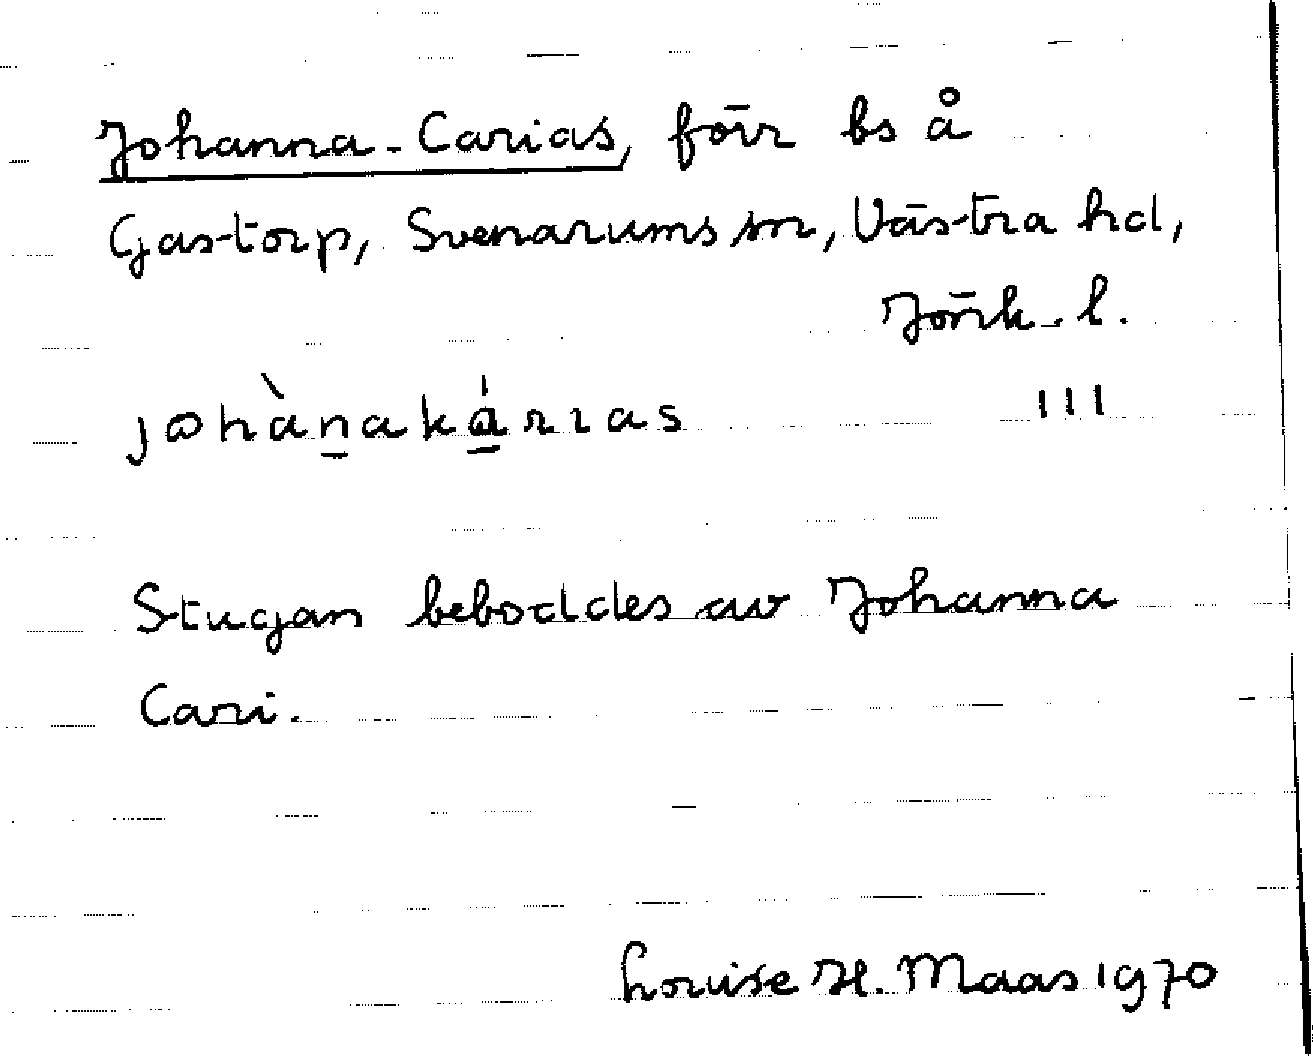 Johanna-Carias, förr bs å
Gastorp, Svenarums sn, Västra hd,
Jönk. l.
johàn̲aká̲rıas III
Stugan beboddes av Johanna
Cari.
Louise H. Maas 1970